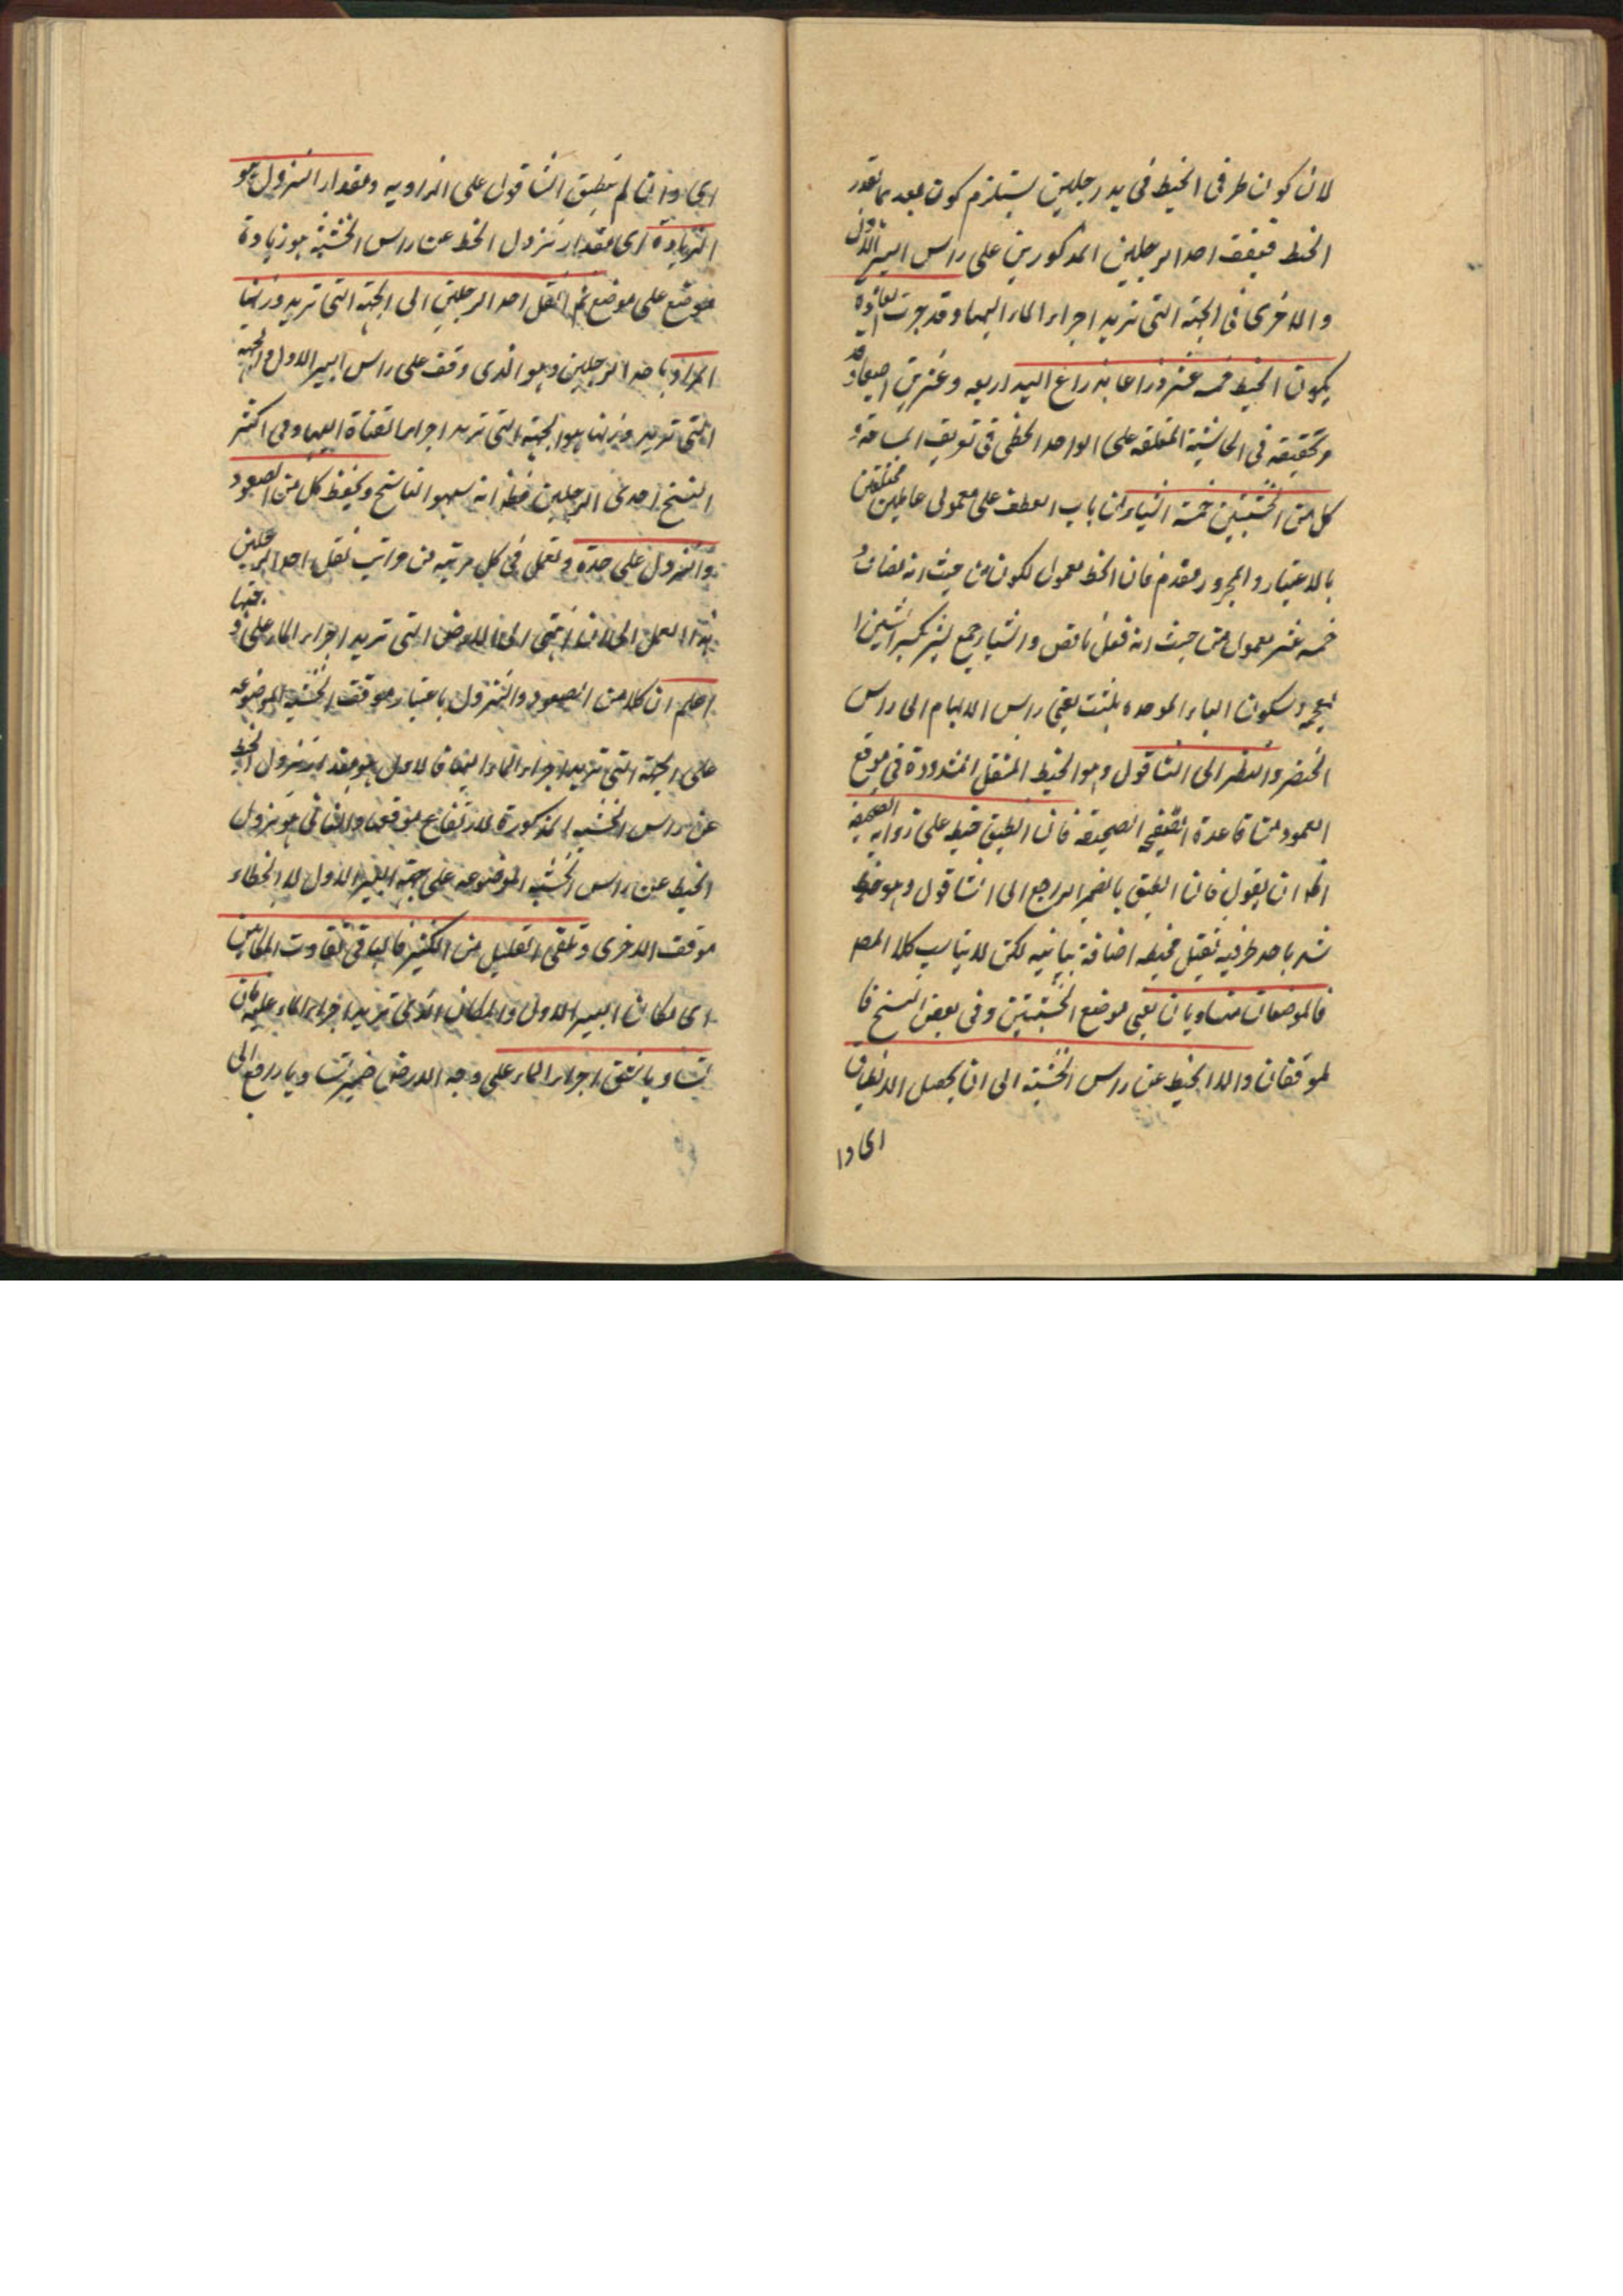 لان كون طرفى الخيط فى يد رجلين يستلزم كون بعدهما بقدر
الخيط فيقف احد الرجلين المذكورين على راس البير الاول
والاخرى فى الجهة التى تريد اجراء الماء اليها وقد جرت العادة
بكون الخيط خمسه عشر ذراعا بذراع اليد اربعه وعشرين اصبعا وقد
وتحقيقه فى الحاشية المتعلقه على الواحد الخطى فى تعريف المساحة و
كل من الخشبتين خمسة اشبار من باب العطف على معمولى عاملين مختلفين
بالاعتبار والمجرور مقدم فان الخيط معمول لكون من حيث انه مضاف و
خمسه عشر معمول من حيث انه فعل ناقص واشبار جمع شبر بكسر الشين ا
لمعجمه وسكون الباء الموحده بلشت يعنى راس الابهام الى راس
الخنصر وانظر الى الشاقول وهو الخيط المثقل المشدودة فى موقع
العمود من قاعدة الصفيحه فان انطبق خيطه على زواية الصحيفه
ان يقول فان انطبق بالضمير الراجع الى الشاقول وهو خيط
شد باحد طرفيه ثقيل فخيطه اضافة بيانيه لكن لا يناسب كلا المص
فالموضعان متساويان يعنى موضع الخشبتين وفى بعض النسخ فا
لموقفان والا الخيط عن راس الخشبة الى ان يحصل الانطباق
اى وا
اى وان لم ينطبق الشاقول على الزاويه ومقدار النزول هو
الزيادة اى مقدار نزول الخط عن راس الخشبة هو زيادة
موضع على موضع ثم انقل احد الرجلين الى الجهة التى تريد وزنها
المراد باحد الرجلين وهو الذى وقف على راس البير الاول والجهة
التى تريد وزنها هو الجهة التى تريد اجراء القناة اليها وفى اكثر
النسخ احدى الرجلين فظ انه سهو الناسخ ويحفظ كل من الصعود
والنزول على حدة وتعمل فى كل مرتبه من مراتب نقل احد الرجلين
هذا العمل الى ان انتهى الى الارض التى تريد اجراء الماء على و
اعلم ان كلا من الصعود والنزول باعتبار موقف الخشبة الموضوعه
على الجهة التى تريد اجراء الماء اليها فالاول هو مقدار نزول الخيط
عن راس الخشبه المذكورة لارتفاع موقفها والثانى هو نزول
الخيط عن راس الخشبه الموضوعه على جهة البير الاول لانحطاء
موقف الاخرى وتلقى القليل من الكثير فالباقى تفاوت المكانين
اى مكان البير الاول والمكان الذى تريد اجراء الماء عليه فان
تساويا شق اجراء الماء على وجه الارض ضمير تساويا راجع الى